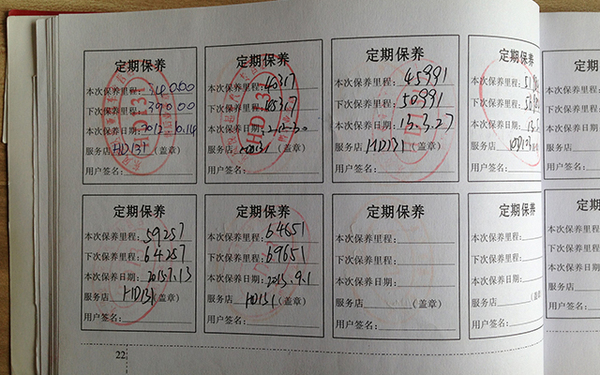 定期保养
本次保养里程: 34000
下次保养里程: 39000
本次保养日期:
服务店 HD131 (盖章)
用户签名:
定期保养
本次保养里程: 40357
下次保养里程: 45357
本次保养日期:
服务店 HD131 (盖章)
用户签名:
定期保养
本次保养里程: 45991
下次保养里程: 50991
本次保养日期: 13.3.27
服务店 HD131 (盖章)
用户签名:
定期保养
本次保养里程:
下次保养里程:
本次保养日期:
服务店 HD131 (盖章)
用户签名:
定期保养
本次保养里程: 59257
下次保养里程: 64257
本次保养日期: 2013.7.13
服务店 HD131 (盖章)
用户签名:
定期保养
本次保养里程: 64651
下次保养里程: 69651
本次保养日期: 2013.9.1
服务店 HD131 (盖章)
用户签名:
定期保养
本次保养里程:
下次保养里程:
本次保养日期:
服务店 (盖章)
用户签名:
定期保养
本次保养里程:
下次保养里程:
本次保养日期:
服务店 (盖章)
用户签名:
22